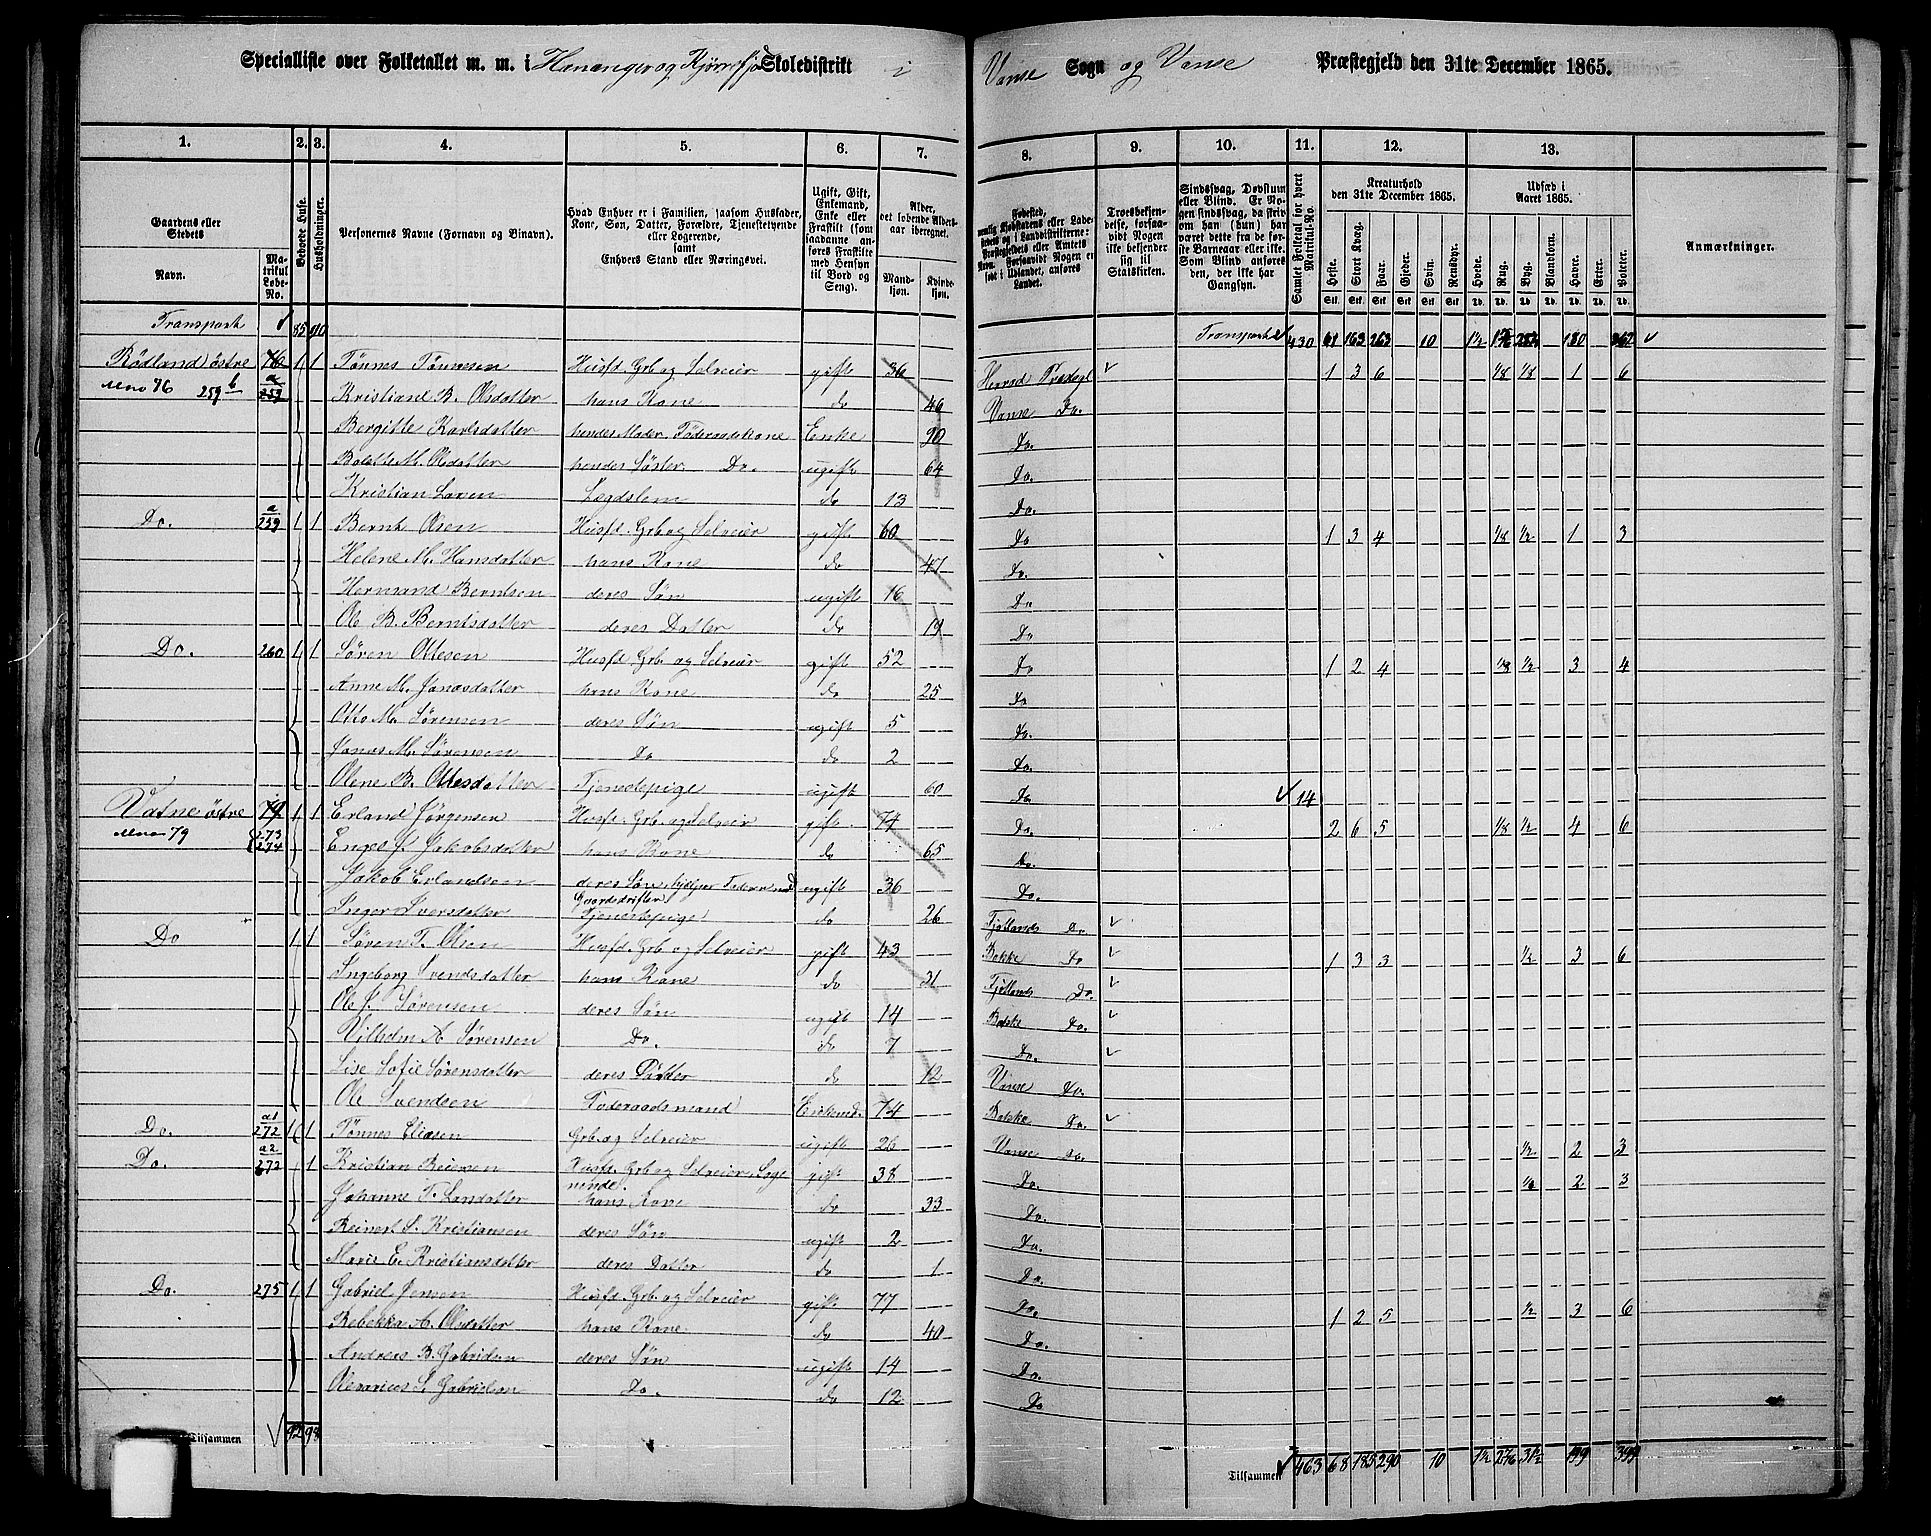 Specialliste over Folketallet m. m. i Hananger og Kjørrefjord Skoledistrikt i Vanse Sogn og Vanse Præstegjeld den 31te December 1865.
1. 2. 3. 4. 5. 6. 7. 8. 9. 10. 11. 12. 13.
Gaardens eller Stedets
Navn.
Matrikul Løbe-No.
Beboede Huse.
Husholdninger.
Personernes Navne (Fornavn og Binavn).
Hvad Enhver er i Familien, saasom Husfader, Kone, Søn, Datter, Forældre, Tjenestetyende eller Logerende, samt Enhvers Stand eller Næringsvei.
Ugift, Gift, Enkemand, Enke eller Fraskilt (som saadanne anføres Fraskilte med Hensyn til Bord og Seng).
Alder, det løbende Aldersaar iberegnet.
Mandkjøn. Kvindekjøn.
Fødested, nemlig Kjøbstadens eller Ladestedets og i Landdistrikterne: Præstegjeldets eller Amtets Navn. Forsaavidt Nogen er født i Udlandet, anføres Landet.
Troesbekjendelse, forsaavidt Nogen ikke bekjender sig til Statskirken.
Sindssvag, Døvstum eller Blind. Er Nogen sindssvag, da skrives om han (hun) har været dette fra de første Barneaar eller ikke. Som Blind anføres den, der ikke har Gangsyn.
Samlet Folketal for hvert Matrikul-No.
Kreaturhold den 31te December 1865.
Heste. Stort Kvæg. Faar. Gjeder. Svin. Rensdyr.
Udsæd i Aaret 1865.
Hvede. Rug. Byg. Blandkorn. Havre. Erter. Poteter.
Anmærkninger.
Transport 85 90 Transport 430 61 163 263 10 1½ 180
Rødland østre 76 1 1 Tønnes Tønnesen Husfd. Grb og Selveier gift 36 Herred Præstegl 1 3 6 ⅛ ⅛ 1 6
Mno 76 259 b Kristiane B. Olsdatter hans Kone do 46 Vanse Do.
Bergitte Karlsdatter hendes Moder, Føderaadskone Enke 90 Do.
Bolette M. Olsdatter hendes Søster Do. ugift 64 Do.
Kristian Larsen Lægdslem do 13 Do.
Do. 259 a 1 1 Bernt Olsen Husfd. Grb og Selveier gift 60 Do 1 3 4 ⅛ ½ 1 3
Helene M. Hansdatter hans Kone do 47 Do.
Hermand Berntsen deres Søn ugift 16 Do
Ole B. Berntsdatter deres Datter do 19 Do
Do. 260 1 1 Søren Ottesen Husfd. Grb. og Selveier gift 52 Do 1 2 4 ⅛ ½ 3 4
Anne M. Jonasdatter hans Kone do 25 Do
Otto M. Sørensen deres Søn ugift 5 Do.
Jonas M. Sørensen Do do 2 Do.
Olene B. Ottesdatter Tjenestepige ugift 60 Do 14
Vatne østre 79 1 1 Erland Jørgensen Husfd. Grb. og Selveier gift 74 Do. 2 6 5 ⅛ ½ 4 6
Mno 79 273 274 Enges J. Jakobsdatter hans Kone do 65 Do.
Jakob Erlandsen deres Søn, hjelper Faderen med Gaardsdriften ugift 36 Do.
Inger Iversdatter Tjenestepige do 26 Fjotlands Do
Do 1 1 Søren T. Olsen Husfd. Grb og Selveier gift 43 Bakke Do 1 3 3 ½ 3 6
Ingeborg Svendsdatter hans Kone do 31 Fjotlands Do.
Ole J. Sørensen deres Søn ugift 14 Bakke Do.
Vilhelm A Sørensen Do. do 7 Do.
Lise Sofie Sørensdatter deres Datter do 12 Vanse Do.
Ole Svendsen Føderaadsmand Enkemd. 74 Bakke Do.
Do. 272 a1 1 1 Tønnes Eliasen Grb. og Selveier ugift 26 Vanse Do. ½ 2 3
Do. 272 a2 1 Kristian Reiersen Husfd. Grb og Selveier gift 38 Do. ½ 2 3
Johanne T. Larsdatter hans Kone do 33 Do.
Reinert S. Kristiansen deres Søn ugift 2 Do.
Marie E. Kristiansdatter deres Datter do 1 Do.
Do. 275 1 1 Gabriel Jensen Husfd. Grb. og Selveier gift 77 Do. 1 2 5 ½ 3 6
Rebekka A. Olsdatter hans Kone do 40 Do.
Andreas B. Gabrielsen deres Søn ugift 14 Do.
Olevarius S. Gabrielsen Do. do 12 Do
Tilsammen 92 98 Tilsammen 463 68 185 290 10 1½ 276 31½ 199 399